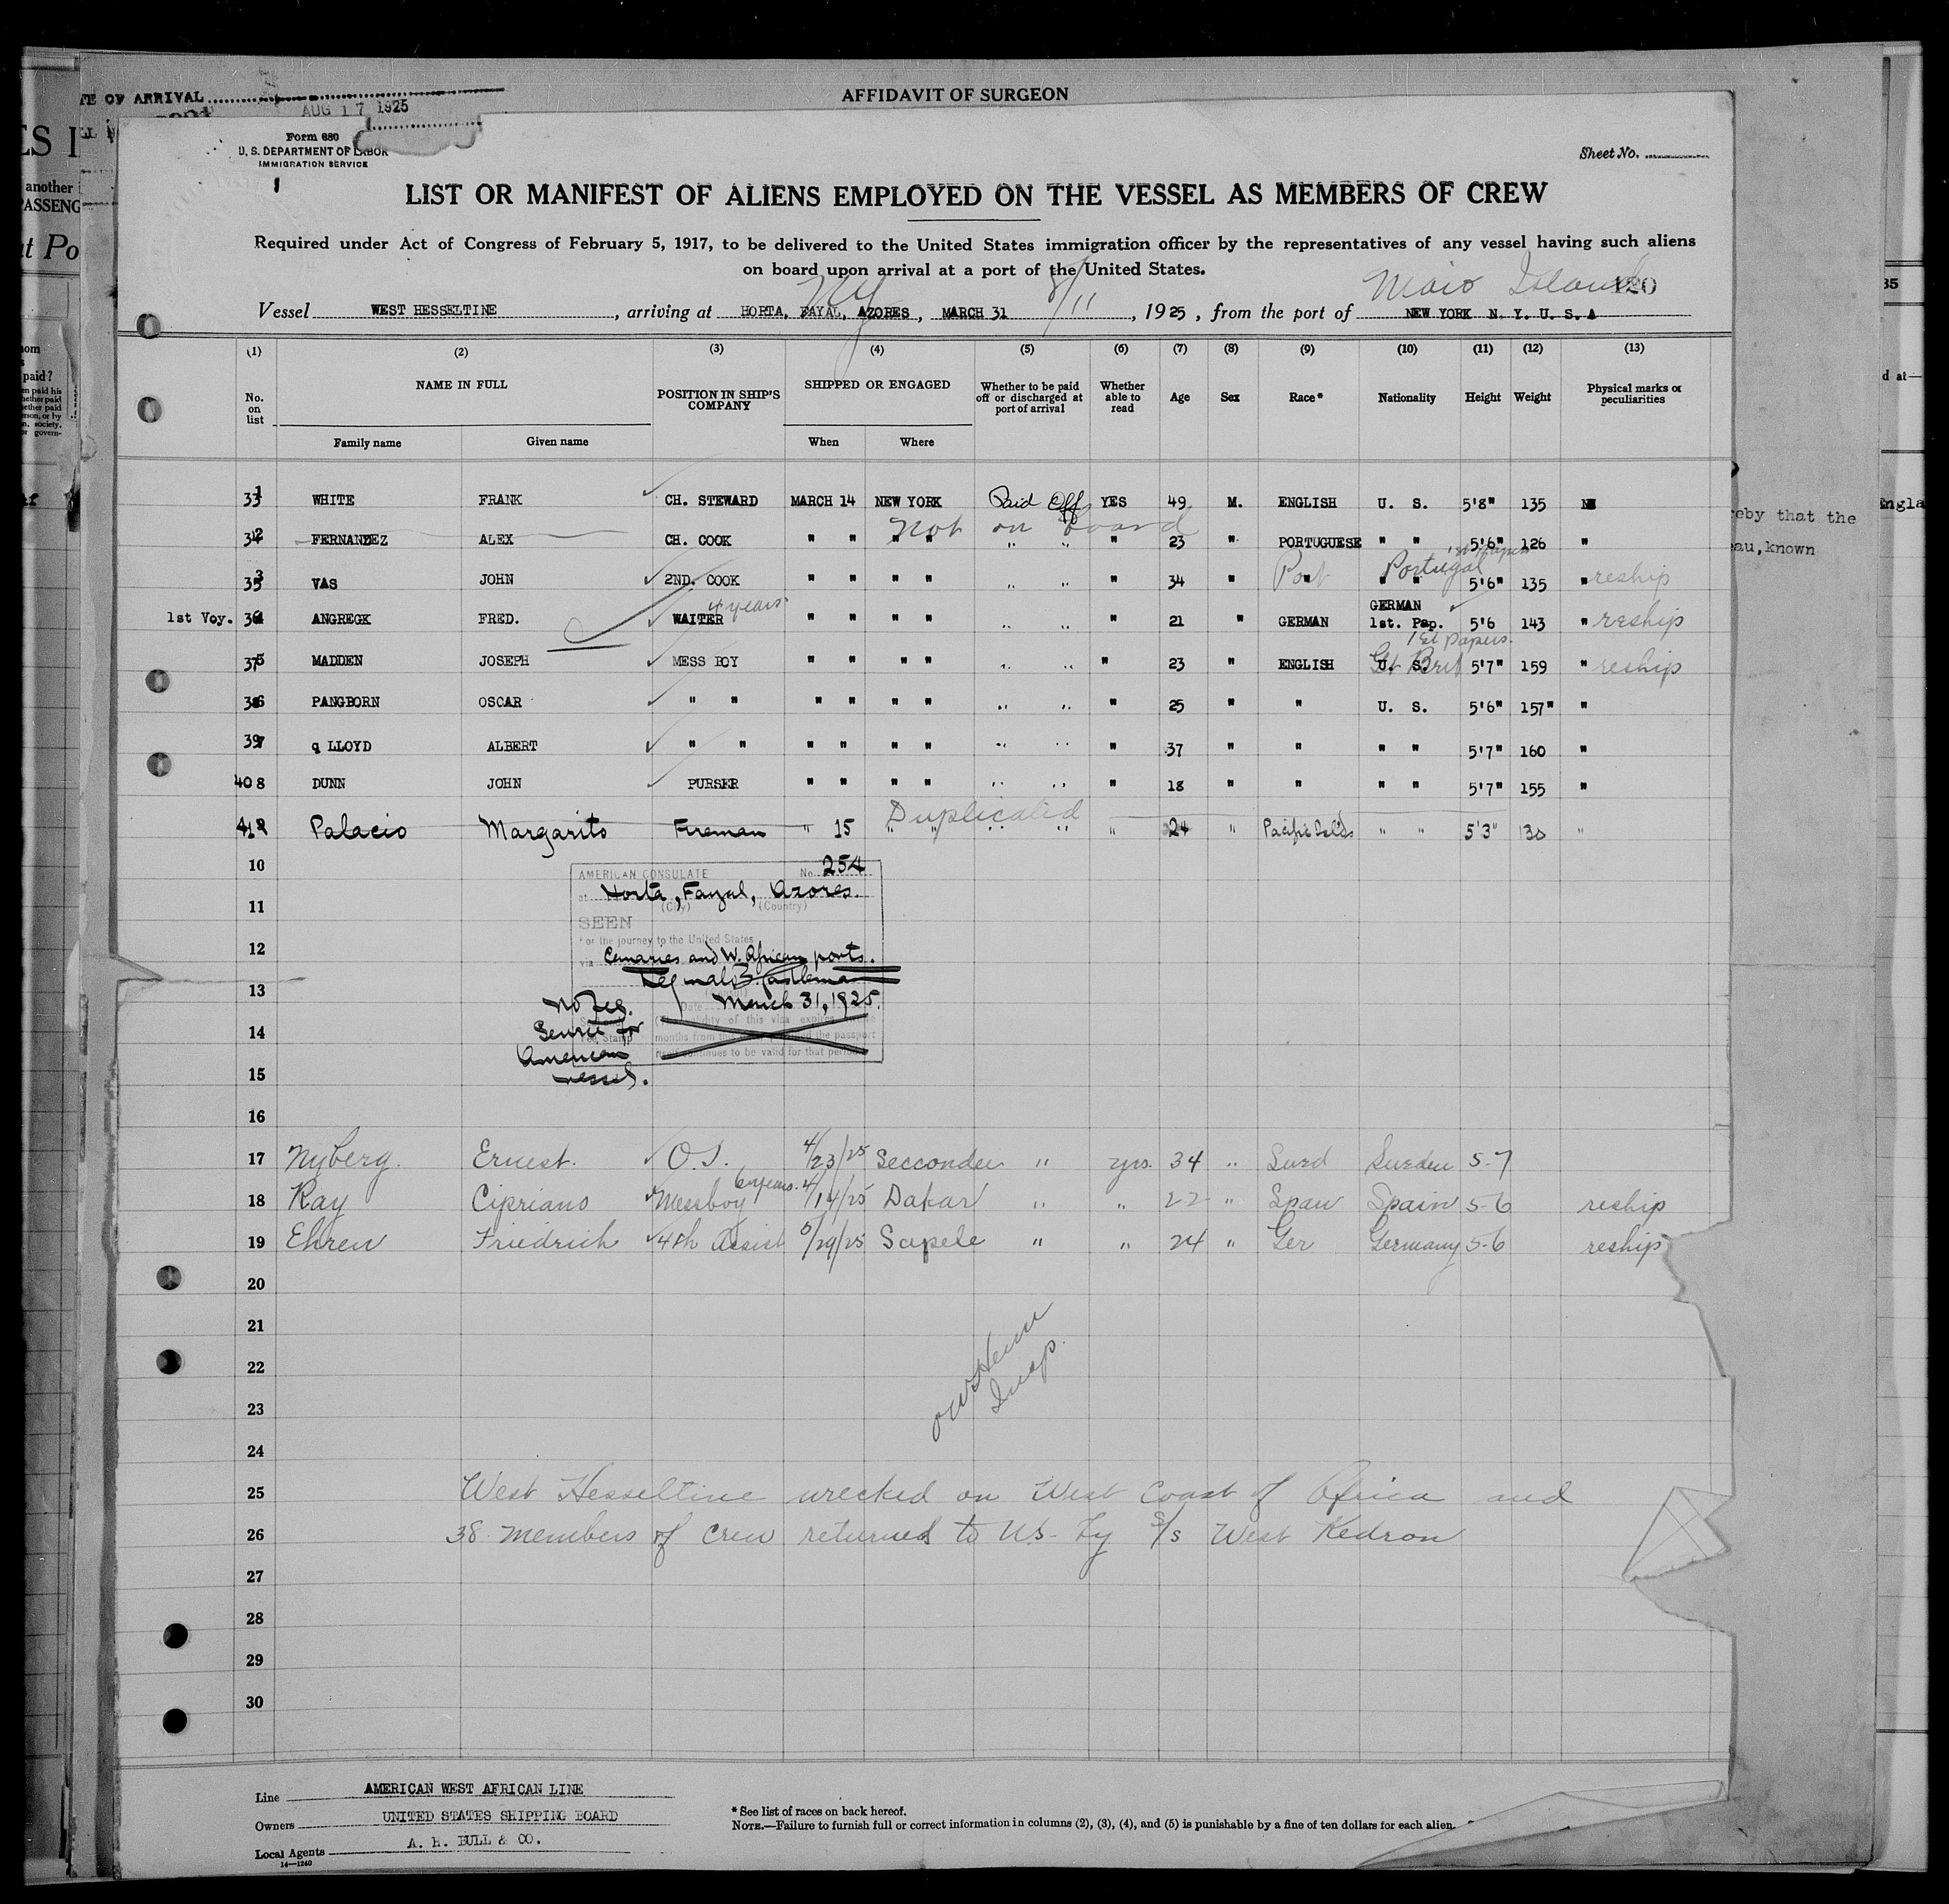 TE OF ARRIVAL
AUG 17 1925
AFFIDAVIT OF SURGEON
Form 680
U. S. DEPARTMENT OF LABOR
IMMIGRATION SERVICE
Sheet No.
1
LIST OR MANIFEST OF ALIENS EMPLOYED ON THE VESSEL AS MEMBERS OF CREW
Required under Act of Congress of February 5, 1917, to be delivered to the United States immigration officer by the representatives of any vessel having such aliens
on board upon arrival at a port of the United States.
NY 8/11 Maio Island 120
Vessel WEST HESSELTINE, arriving at HORTA, FAYAL, AZORES, MARCH 31, 1925, from the port of NEW YORK N. Y. U. S. A
(1) (2) (3) (4) (5) (6) (7) (8) (9) (10) (11) (12) (13)
No. on list NAME IN FULL POSITION IN SHIP'S COMPANY SHIPPED OR ENGAGED Whether to be paid off or discharged at port of arrival Whether able to read Age Sex Race* Nationality Height Weight Physical marks or peculiarities
Family name Given name When Where
33 1 WHITE FRANK CH. STEWARD MARCH 14 NEW YORK Paid Off YES 49 M. ENGLISH U. S. 5'8" 135
Not on board
34 2 FERNANDEZ ALEX CH. COOK " " " " " " " 23 " PORTUGUESE " " 5'6" 126 "
1st Papers
35 3 VAS JOHN 2ND. COOK " " " " " " " 34 " Port Portugal 5'6" 135 " reship
4 years
1st Voy. 36 4 ANGREGK FRED. WAITER " " " " " " " 21 " GERMAN GERMAN 1st. Pap. 5'6 143 " reship
1st papers.
37 5 MADDEN JOSEPH MESS BOY " " " " " " " 23 " ENGLISH U. S. Gt Brit 5'7" 159 " reship
38 6 PANGBORN OSCAR " " " " " " " " " 25 " " U. S. 5'6" 157" "
39 7 q LLOYD ALBERT " " " " " " " " " 37 " " " " 5'7" 160 "
40 8 DUNN JOHN PURSER " " " " " " " 18 " " " " 5'7" 155 "
Duplicated
41 9 Palacio Margarito Fireman " 15 " " " " " 24 " Pacific Isl'ds " " 5'3" 130 "
10
AMERICAN CONSULATE No. 254
at Horta, Fayal, Azores.
(City) (Country)
11
SEEN
For the journey to the United States
12
via Canaries and W. African ports.
13
March 31, 1925.
No fee.
14
Service for
American
vessel.
months from this the passport
continues to be valid for that period
15
16
17 Nyberg. Ernest. O.S. 4/23/25 Secconde " yes. 34 " Swed Sweden 5-7
6 years.
18 Ray Cipriano Messboy 4/14/25 Dakar " " 22 " Span Spain 5-6 reship
19 Ehren Friedrich 4th Assist 5/29/25 Sapele " " 24 " Ger Germany 5-6 reship
20
21
22
Insp.
23
24
25 West Hesseltine wrecked on West Coast of Africa and
26 38 members of crew returned to U.S. by S/S West Kedron
27
28
29
30
Line AMERICAN WEST AFRICAN LINE
Owners UNITED STATES SHIPPING BOARD
Local Agents A. H. BULL & CO.
14—1240
* See list of races on back hereof.
NOTE.—Failure to furnish full or correct information in columns (2), (3), (4), and (5) is punishable by a fine of ten dollars for each alien.
eby that the
au, known
Engla
another
PASSENG
d at—